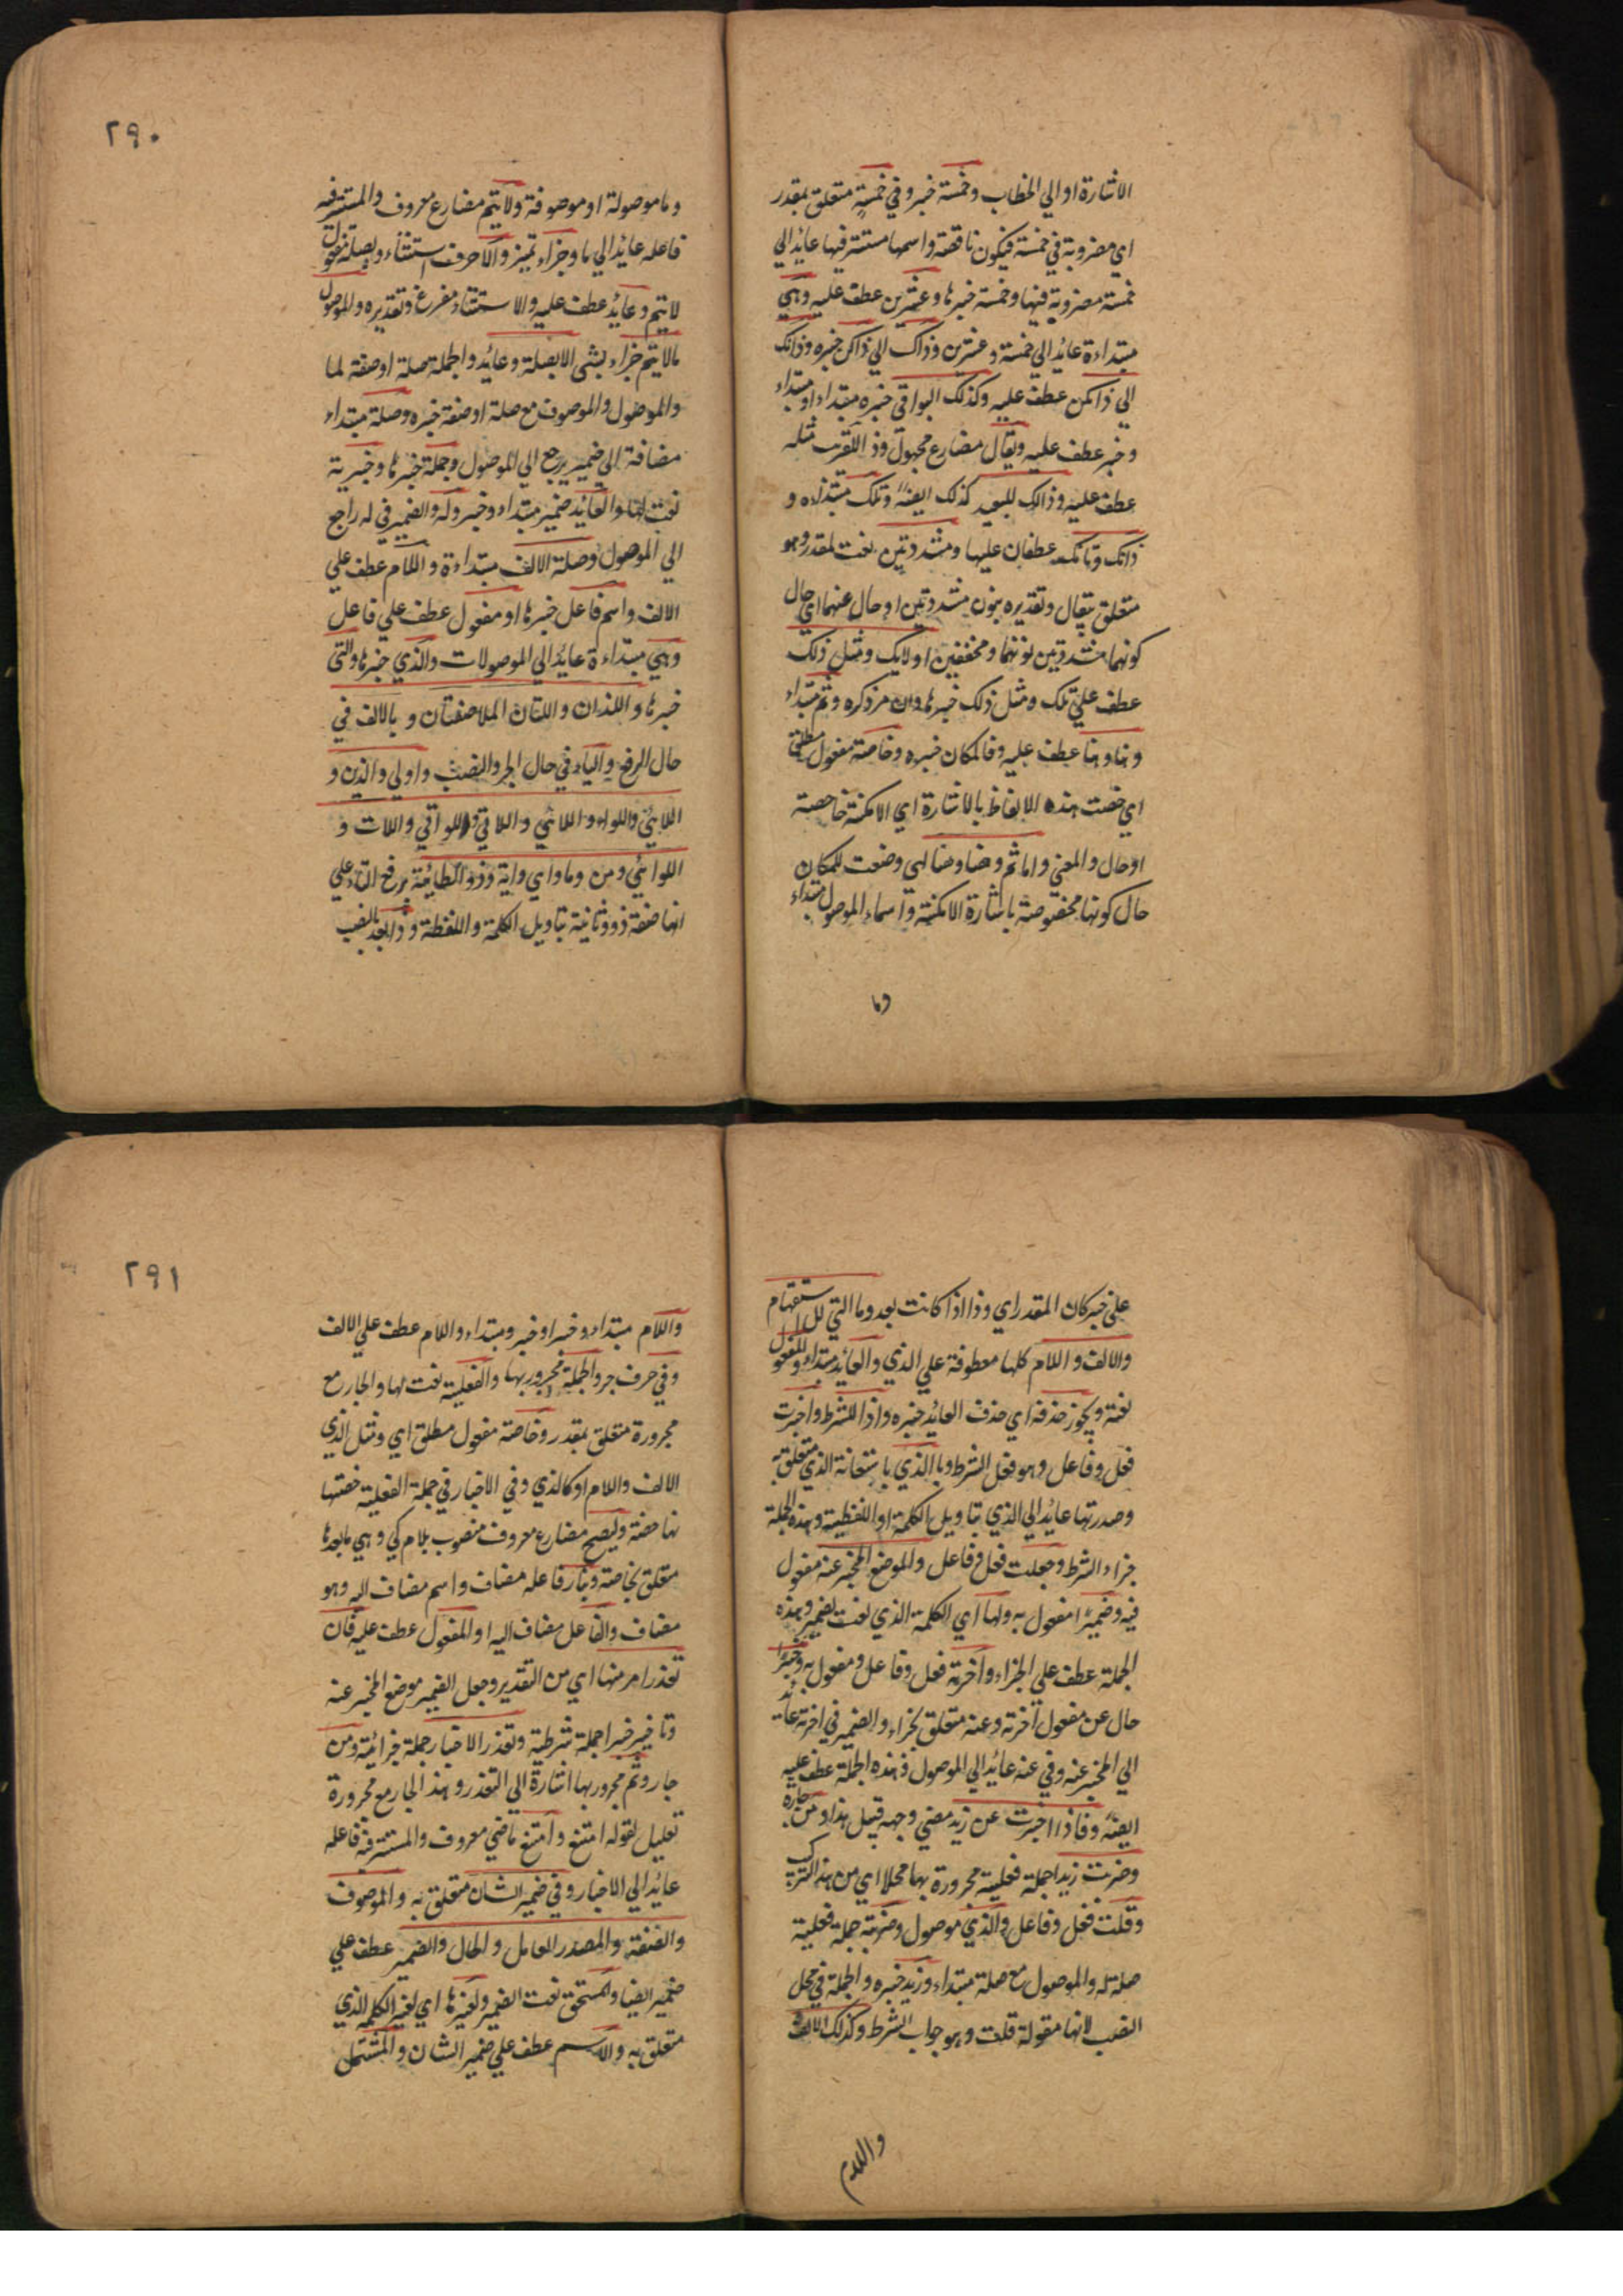 الاشارة او الي الخطاب وخمسة خبر وفي خمسة متعلق بمقدر
اي مضروبة في خمسة فيكون ناقصة واسمها مستتر فيها عايد الي
خمسة مضروبة فيها وخمسة خبرها وعشرين عطف عليه وهي
مبتداءة عائد الي خمسة وعشرين وذاك الي ذاكن خبره وذانك
الي ذانكن عطف عليه وكذلك البواقي خبره مبتداء او مبتداء
وخبر عطف عليه ويقال مضارع مجهول وذا للقريب مثله
عطف عليه وذالك للبعيد كذلك ايضًا وتلك مبتداءه و
ذانك وتانك عطفان عليها ومشددتين نعت لمقدر وهو
متعلق بيقال وتقديره بنون مشددتين او حال عنهما اي حال
كونهما مشددتين نونهما ومخففين اولايك ومثل ذلك
عطف علي تلك ومثل ذلك خبرها وان مر ذكره وثم مبتداء
وهنا وهنا عطف عليه وفا لمكان خبره وخاصة مفعول مطلق
اي خصت هذه الالفاظ بالاشارة اي الامكنة خاصة
او حال والمعني واما ثم وهنا وهنا الهي وضعت للمكان
حال كونها مخصوصة باشارة الامكنة واسماء الموصول مبتداء
وما
٢٩٠
وما موصولة او موصوفة ولا يتم مضارع معروف والمستتر فيه
فاعله عايد الي ما وجزاء تميز والا حرف استثناء وبصلة مفعول
لا يتم وعائد عطف عليه والاستثناء مفرغ وتقديره والموصول
مالا يتم جزاء بشي الا بصلة وعائد واجملة صلة او صفة لما
والموصول والموصوف مع صلة او صفة خبره وصلة مبتداء
مضافة الي ضمير يرجع الي الموصول وجملة خبرها وخبرية
نعت لها والعايد ضمير مبتداء وخبر وله والضمير في له راجع
الي الموصول وصلة الالف مبتداءة واللام عطف علي
الالف واسم فاعل خبرها او مفعول عطف علي فاعل
وهي مبتداءة عائد الي الموصولات والذي خبرها والتي
خبرها واللذان واللتان الملاصقتان و بالالف في
حال الرفع والياء في حال الجر والنصب واولي والذين و
اللائي واللواء واللائي واللاتي واللواتي واللات و
اللوائي ومن وما واي واية وذو الطائية برفع التاء علي
انها صفة ذو وثانية بتاويل الكلمة واللفظة وذا بعد بالنصب
علي خبر كان المقدر اي وذا اذا كانت بعد وما التي للاستفهام
والالف واللام كلها معطوفة علي الذي والعائد مبتداء والمفعول
نعته ويجوز حذفه اي حذف العائد خبره واذا للشرط واخبرت
فعل وفاعل وهو فعل الشرط وبا الذي باستعانة الذي متعلق به
وصدرتها عائد الي الذي بتاويل الكلمة او اللفظية وهذه الجملة
جزاء الشرط وجعلت فعل وفاعل والموضع المخبر عنه مفعول
فيه وضميرًا مفعول به ولها اي الكلمة الذي نعت لضمير وهذه
الجملة عطف علي الجزاء واخرته فعل وفاعل ومفعول به وخبرًا
حال عن مفعول اخرته وعنه متعلق بخراء والضمير في اخرته عائد
الي المخبر عنه وفي عنه عائد الي الموصول فهذه الجملة عطف عليه
ايضًا وفاذا اخبرت عن زيد مضي وجهه قبيل هذا ومن جاره
وضربت زيدا جملة فعلية مجرورة بها محلا اي من هذا التركيب
وقلت فعل وفاعل والذي موصول وضربته جملة فعلية
صلة له والموصول مع صلة مبتداء وزيد خبره والجملة في محل
النصب لانها مقولة قلت وهو جواب الشرط وكذلك الالف
واللام
٢٩١
واللام مبتداء وخبر او خبر ومبتداء واللام عطف علي الالف
وفي حرف جر والجملة مجرور بها والفعلية نعت لها والجار مع
مجرورة متعلق بمقدر وخاصة مفعول مطلق اي ومثل الذي
الالف واللام او كالذي وفي الاخبار في جملة الفعلية خصتها
بها خصة وليصح مضارع معروف منصوب بلام كي وهي ما بعدها
متعلق بخاصة وبناء فاعله مضاف واسم مضاف اليه وهو
مضاف والفاعل مضاف اليه او المفعول عطف عليه فان
تعذر امر منها اي من التقدير وجعل الضمير موضع المخبر عنه
وتاخير خبرا جملة شرطية وتعذر الاخبار جملة جزائية ومن
جار وثم مجرور بها اشارة الي التعذر وهذ الجار مع مجرورة
تعليل لقوله امتنع وامتنع ماضي معروف والمستتر فيه فاعله
عائد الي الاخبار وفي ضمير الشان متعلق به والموصوف
والصفة والمصدر العامل والحال والضمير عطف علي
ضمير ايضا والمستحق نعت الضمير ولغيرها اي لغير الكلمه الذي
متعلق به والاسم عطف علي ضمير الشان والمشتمل